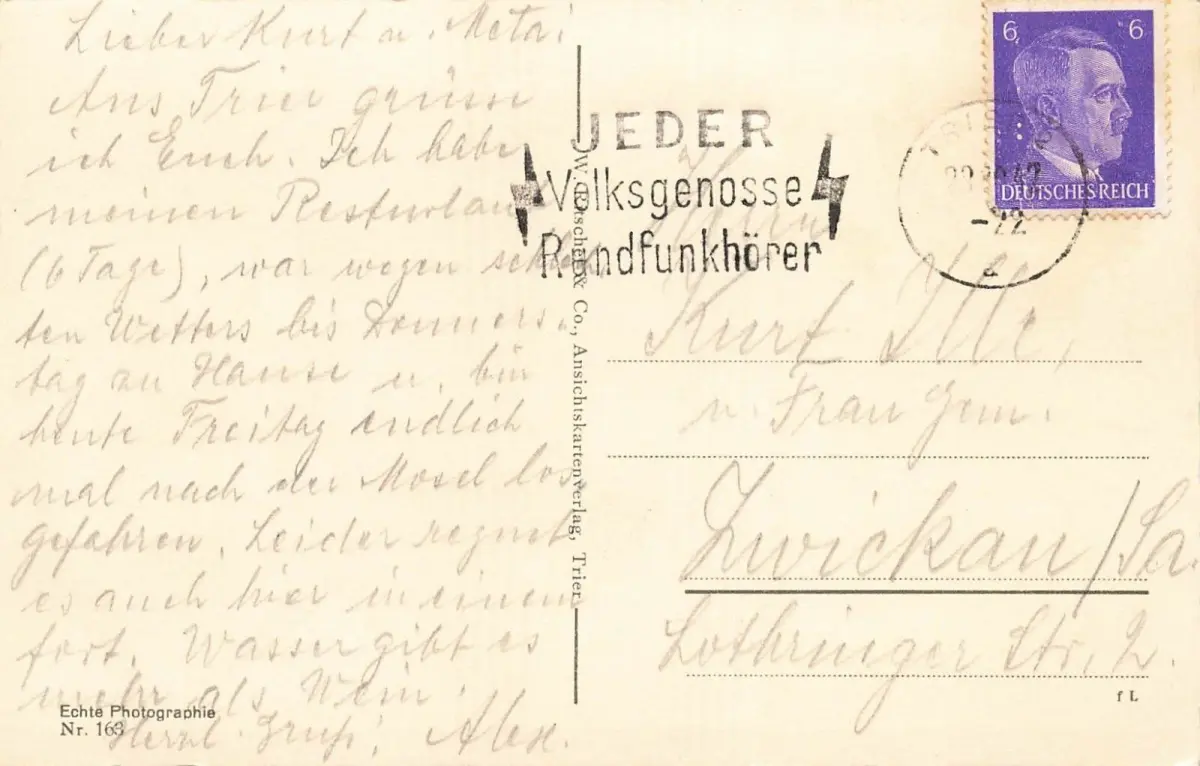 Lieber Kurt u. Meta!
Aus Trier grüsse
ich Euch. Ich habe
meinen Resturlaub
(6 Tage), war wegen schlech
ten Wetters bis Donners-
tag zu Hause u. bin
heute Freitag endlich
mal nach der Mosel los
gefahren. Leider regnet
es auch hier in einem
fort. Wasser gibt es
mehr als Wein.
Herzl. Gruß, Alex.
Echte Photographie
Nr. 163
W. & Co., Ansichtskartenverlag, Trier
JEDER
Volksgenosse
Rundfunkhörer
6 6
DEUTSCHES REICH
-22
a
Herrn
Kurt Ille,
u. Frau Gem.
Zwickau/Sa.
Lothringer Str. 2.
f L